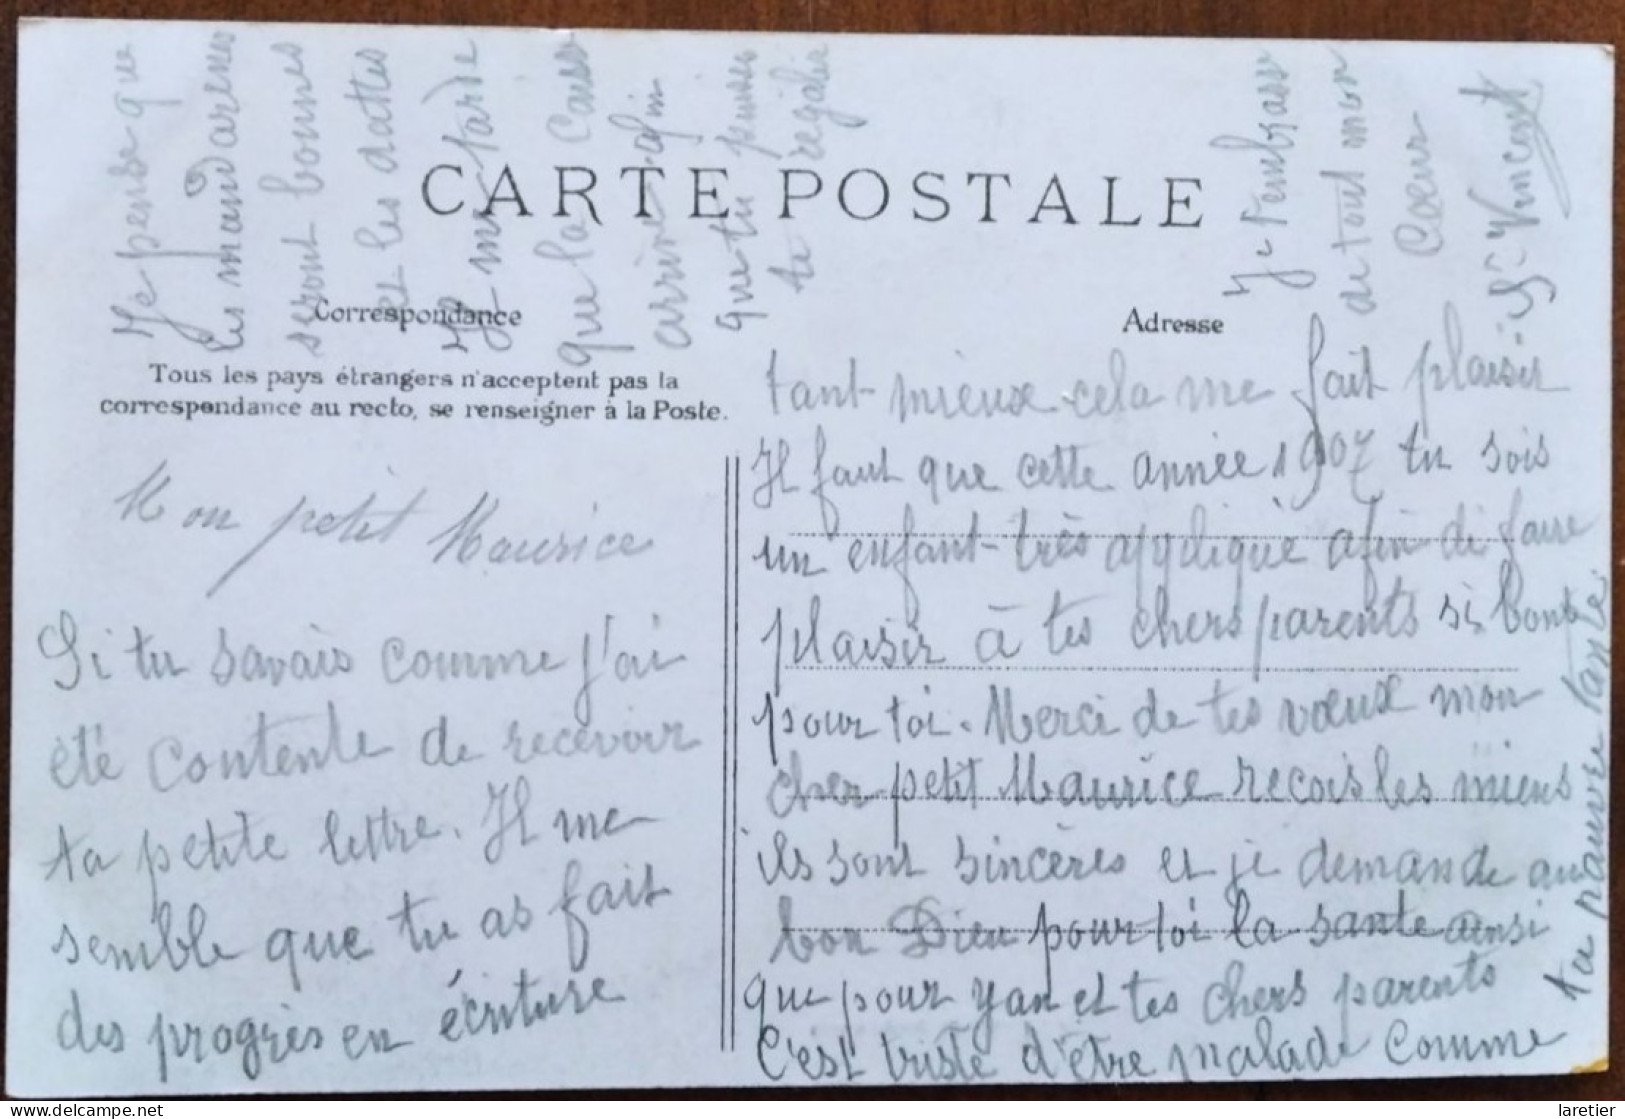 CARTE POSTALE
Correspondance
Adresse
Tous les pays étrangers n'acceptent pas la
correspondance au recto, se renseigner à la Poste.
Mon petit Maurice
Si tu savais comme j'ai
été contente de recevoir
ta petite lettre. Il me
semble que tu as fait
des progrès en écriture
tant mieux cela me fait plaisir
Il faut que cette année 1907 tu sois
un enfant très appliqué afin de faire
plaisir à tes chers parents si bons
pour toi. Merci de tes vœux mon
cher petit Maurice recois les miens
ils sont sincères et je demande au
bon Dieu pour toi la sante ainsi
que pour yan et tes chers parents
C'est triste d'être malade comme
ta pauvre tante.
Je pense que
les mandarines
seront bonnes
et les dattes
Il me tarde
que la caisse
arrive afin
que tu puisses
te régaler
Je t'embrasse
de tout mon
Cœur
Sr Vincent
delcampe.net
laretier